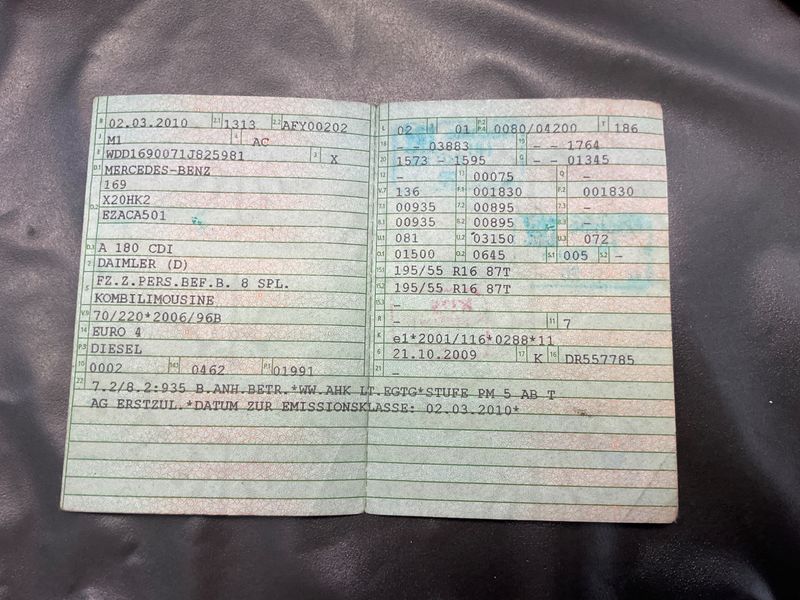 B 02.03.2010 2.1 1313 2.2 AFY00202
J M1 4 AC
E WDD1690071J825981 3 X
D.1 MERCEDES-BENZ
169
X20HK2
D.2 EZACA501
D.3 A 180 CDI
2 DAIMLER (D)
5 FZ.Z.PERS.BEF.B. 8 SPL.
KOMBILIMOUSINE
V.9 70/220*2006/96B
14 EURO 4
P.3 DIESEL
10 0002 14.1 0462 P.1 01991
22 7.2/8.2:935 B.ANH.BETR.*WW.AHK LT.EGTG*STUFE PM 5 AB T
AG ERSTZUL.*DATUM ZUR EMISSIONSKLASSE: 02.03.2010*
L 02 9 01 P.2 P.4 0080/04200 T 186
18 - - 03883 19 - - 1764
20 1573 - 1595 G - - 01345
12 - 13 00075 Q -
V.7 136 F.1 001830 F.2 001830
7.1 00935 7.2 00895 7.3 -
8.1 00935 8.2 00895 8.3 -
U.1 081 U.2 03150 U.3 072
O.1 01500 O.2 0645 S.1 005 S.2 -
15.1 195/55 R16 87T
15.2 195/55 R16 87T
15.3 -
R - 11 7
K e1*2001/116*0288*11
6 21.10.2009 17 K 16 DR557785
21 -